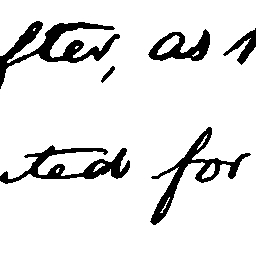 fter, as
ted for